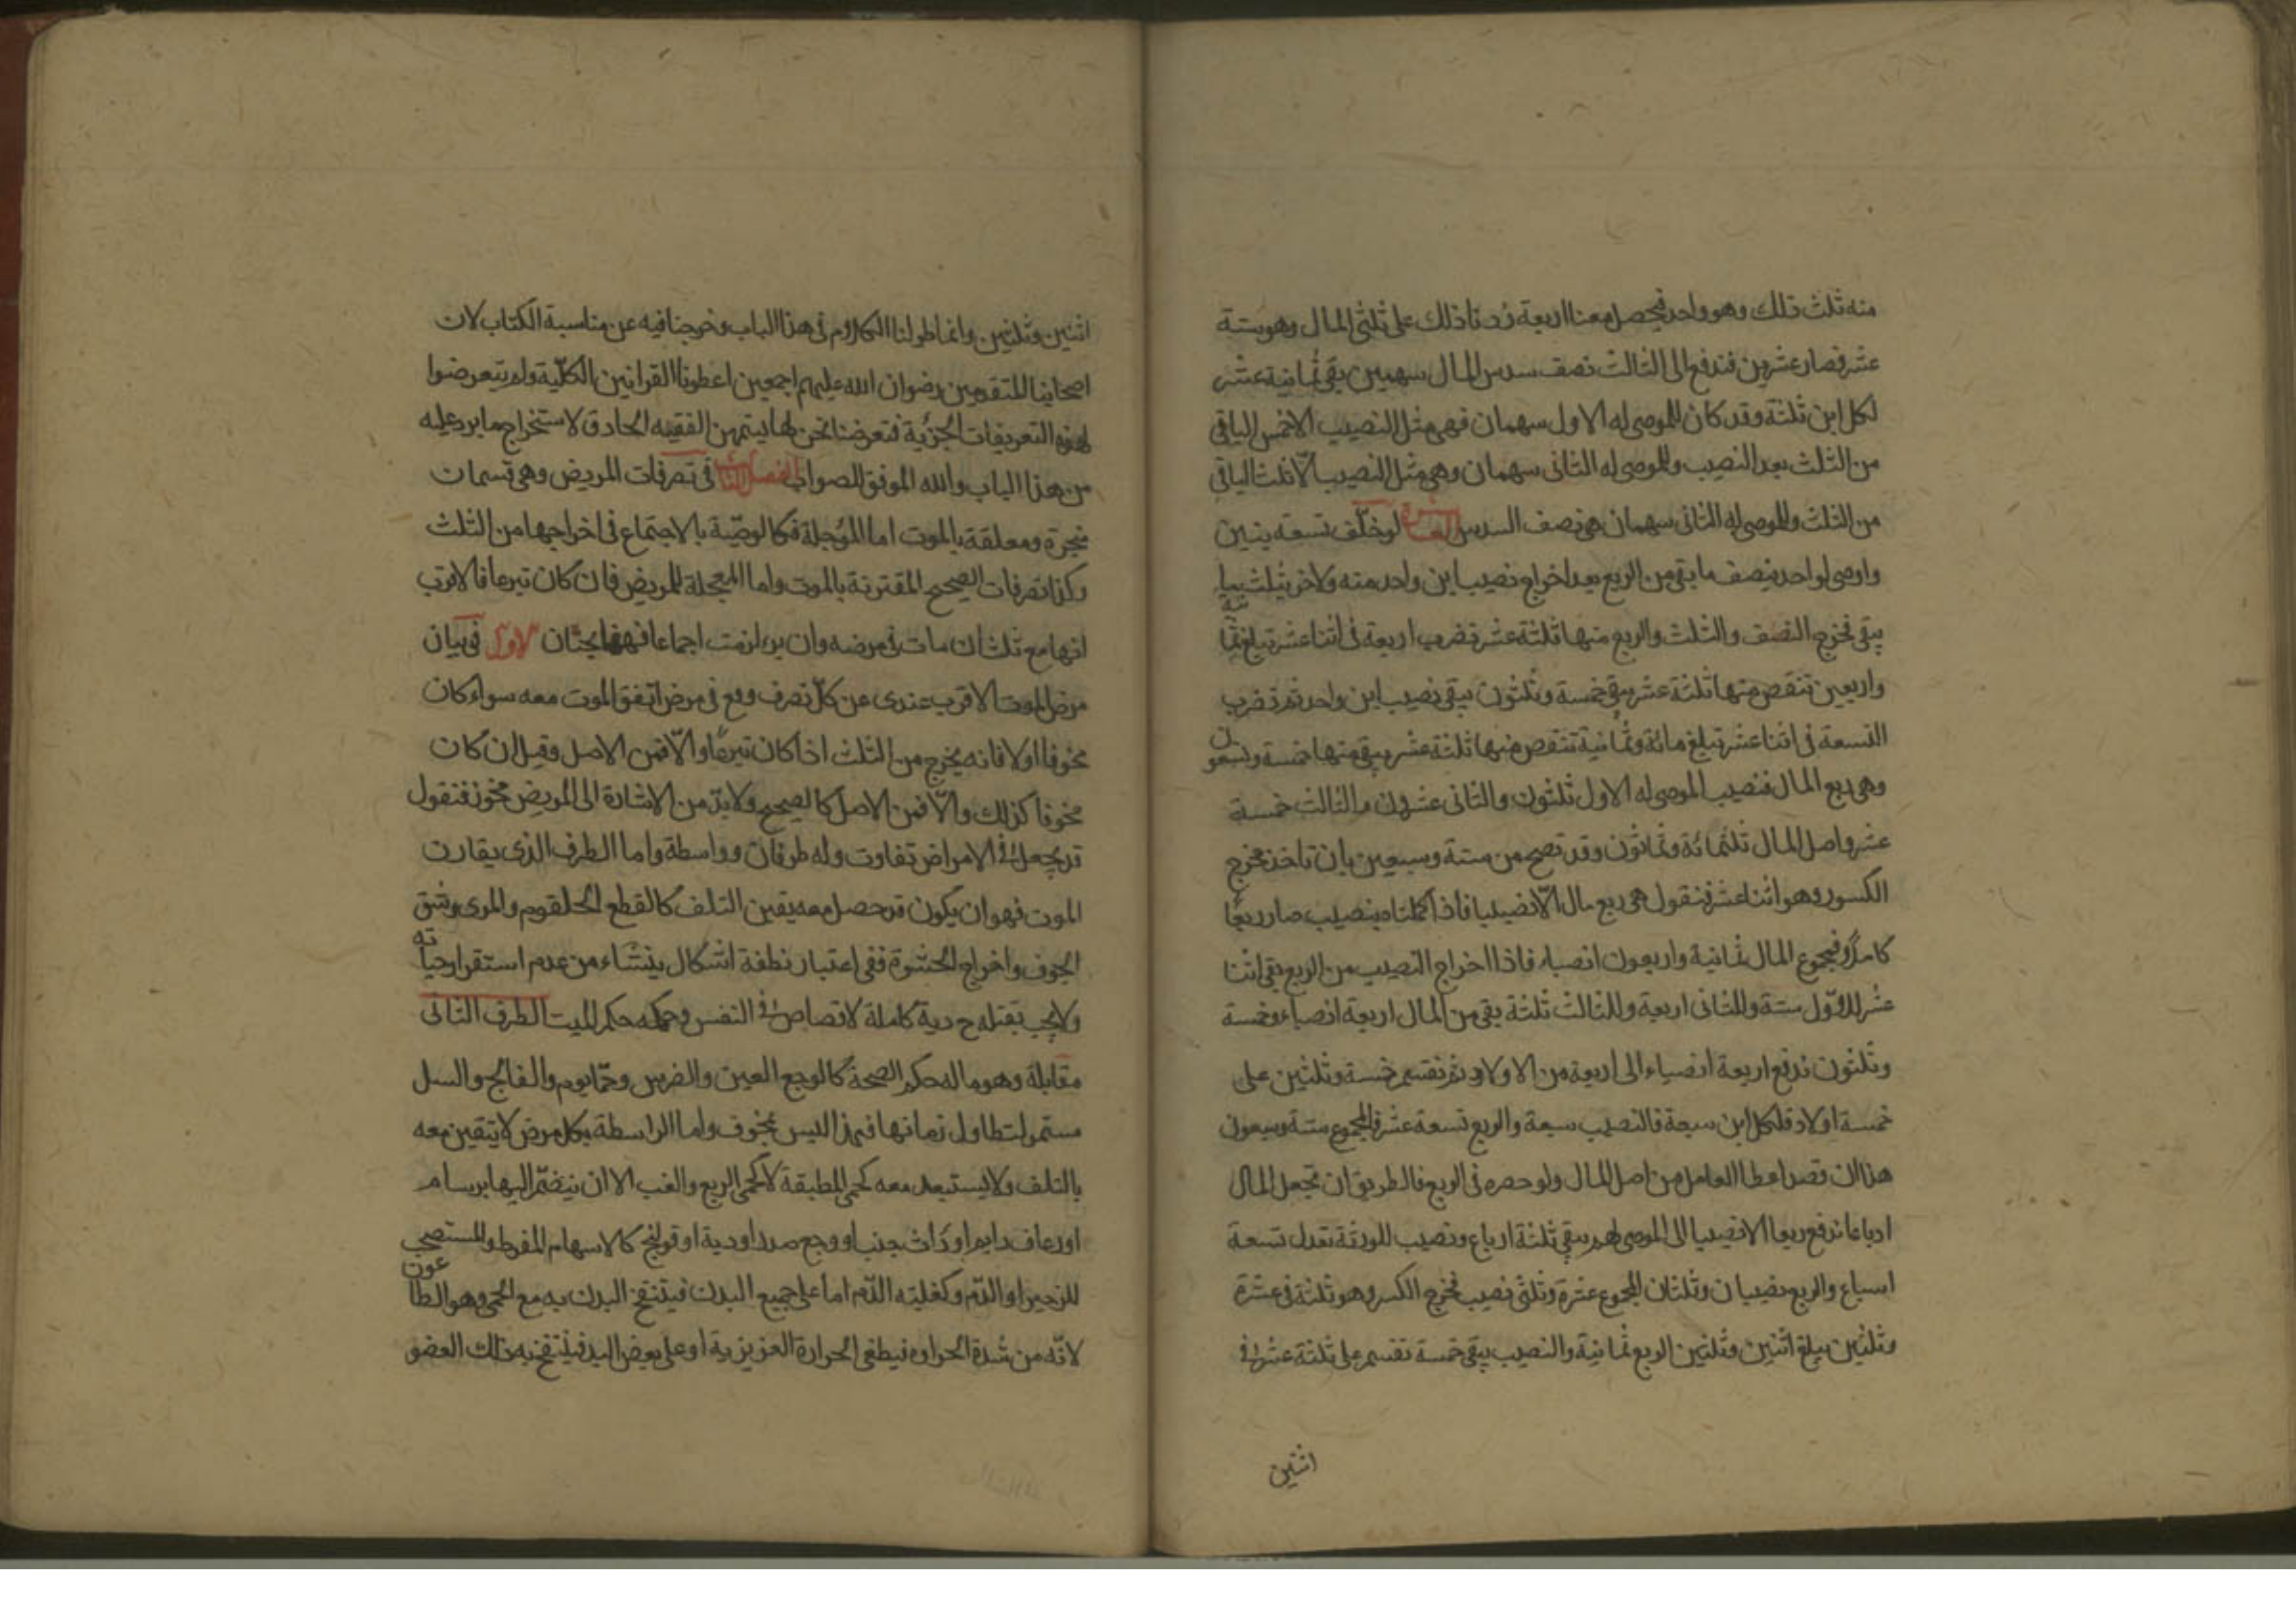 منه ثلث ذلك وهو واحد فيحصل معنا اربعة زدنا ذلك على ثلثى المال وهو ستة
عشر فصار عشرين فندفع الى الثالث نصف سدس المال سهمين بقى ثمانية عشر
لكل ابن ثلثة وقد كان للموصى له الاول سهمان فهى مثل النصيب الا خمس الباقى
من الثلث بعد النصيب وللموصى له الثانى سهمان وهى مثل النصيب الّا ثلث الباقى
من الثلث وللموصى له الثانى سهمان هى نصف السدس لو خلّف تسعة بنين
واوصى لواحد بنصف ما بقى من الربع بعد اخراج نصيب ابن واحد منه ولاخر بثلث بما
يبقى فخرج النصف والثلث والربع منها ثلثة عشر تضرب اربعة فى اثنا عشر تبلغ ثمانية
واربعين تنقص منها ثلثة عشر يبقى خمسة وثلثون يبقى نصيب ابن واحد ثم تضرب
التسعة فى اثنا عشر تبلغ مائة وثمانية تنقص منها ثلثة عشر يبقى منها خمسة وتسعون
وهى ربع المال فنصيب الموصى له الاول ثلثون والثانى عشرون والثالث خمسة
عشر واصل المال ثلثمائة وثمانون وقد تصح من ستة وسبعين بان تاخذ مخرج
الكسور وهو اثنا عشر فنقول هى ربع مال الّا نصيبا فاذا اكملناه بنصيب صار ربعًا
كاملًا فمجموع المال ثمانية واربعون انصباء فاذا اخراج النصيب من الربع بقى اثنا
عشر للاوّل ستة وللثانى اربعة وللثالث ثلثة بقى من المال اربعة انصباء وخمسة
وثلثون ندفع اربعة انصباء الى اربعة من الاولاد ثم نقسم خمسة وثلثين على
خمسة اولاد فلكل ابن سبعة فالنصيب سبعة والربع تسعة عشر فالمجموع ستة وسبعون
هذا ان قصد اعطا العامل من اصل المال ولو حصره فى الربع فالطريق ان تجعل المال
ارباعا ندفع ربعا الا نصيبا الى الموصى لهم يبقى ثلثة ارباع ونصيب للورثة تعدل تسعة
اسباع والربع نصيبان وثلثان المجموع عشرة وثلثى نصيب فخرج الكسر وهو ثلثة فى عشرة
وثلثين يبلغ اثنين وثلثين الربع ثمانية والنصيب يبقى خمسة تقسم على ثلثة عشر فى
اثنين
اثنين وثلثين وانما طولنا الكلام فى هذا الباب وخرجنا فيه عن مناسبة الكتاب لان
اصحابنا المتقدمين رضوان الله عليهم اجمعين اعطونا القرانين الكلّية ولم يتعرضوا
لهذه التعريفات الجزئية فتعرضنا نحن لها ليتمهن الفقيه الحادق لاستخراج ما يرد عليه
من هذا الباب والله الموفق للصواب الفصل الثالث فى تصرفات المريض وهى قسمان
منجزة ومعلقة بالموت اما المؤجلة فكالوصيّة بالاجتماع فى اخراجها من الثلث
وكذا تصرفات الصحيح المقترنة بالموت واما المعجلة للمريض فان كان تبرعا فالاقرب
انها مع ثلث ان مات فى مرضه وان برا لزمت اجماعا فههنا بحثان الاول فى بيان
مرض الموت الاقرب عندى عن كلّ تصرف وقع فى مرض اتفق الموت معه سواء كان
مخوفا اولا فانه يخرج من الثلث اذا كان تبرعًا والّا فمن الاصل وقيل ان كان
مخوفا كذلك والّا فمن الاصل كالصحيح ولا بدّ من الاشارة الى المريض مخوز فنقول
قد يجعل فى الامراض تفاوت وله طرفان وواسطة واما الطرف الذى يقارن
الموت فهو ان يكون قد حصل معه يقين التلف كالقطع الحلقوم والمرى وشق
الجوف واخراج الحشوة ففى اعتبار نطفة اشكال ينشاء من عدم استقرار حياته
ولا يجب بقتله ح دية كاملة لا قصاص فى النفس وحكمه حكم الميت الطرف الثانى
مقابلة وهو ما له حكم الصحة كالوجع العين والضرس وحمّا يوم والفالج والسل
مستمر لتطاول زمانها فهذا ليس بمخوف واما الراسطة بكل مرض لا يتقين معه
بالتلف ولا يستبعد معه كحمى المطبقة لا كحمى الربع والغب الا ان ينضمّ اليها برسام
او رعاف دايم او ذات جنب او وجع صدر او دية او قولنج كالاسهام المفرط والمستصحب
للزحير او الدّم وكغلبته الدّم اما على جميع البدن فينتفخ البدن به مع الحمى وهو الطاعون
لانّه من شدة الحراره فيطغى الحرارة العزيزية او على بعض البدن فينتفخ به ذلك العضو